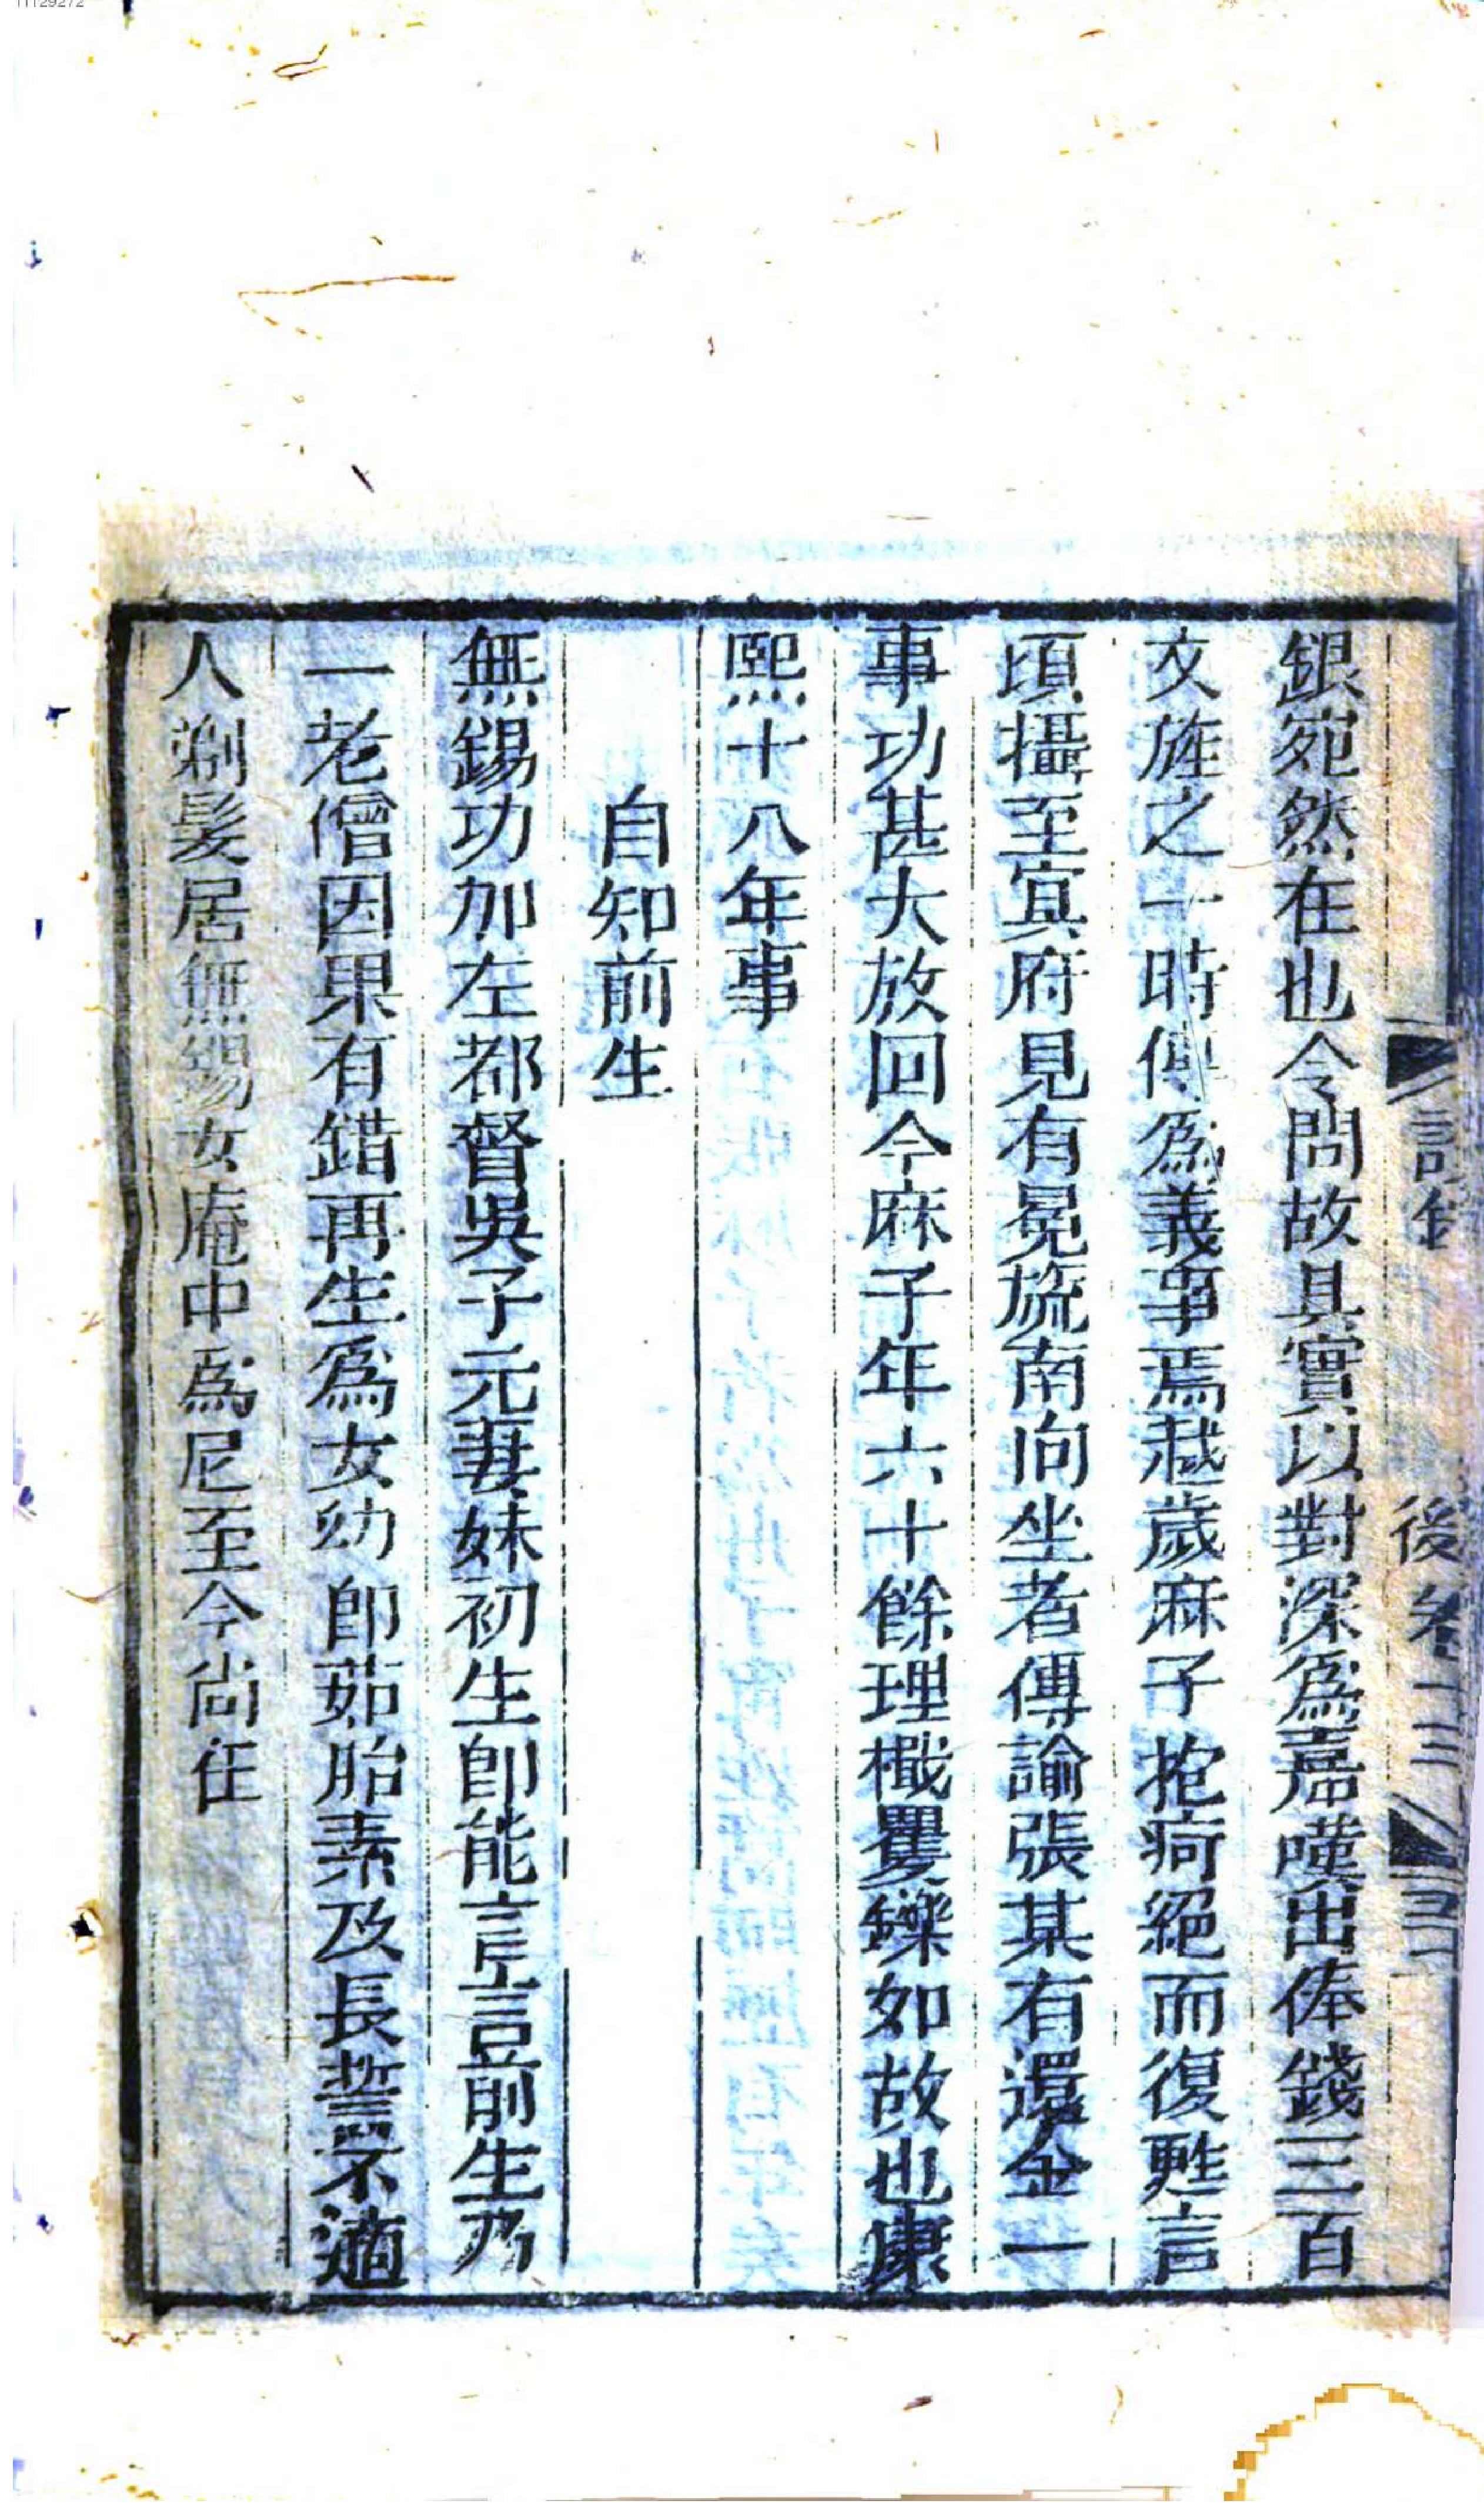 銀宛然在也令問故具實以對深爲嘉嘆出俸錢三百
文旌之一時傳爲義事焉越歲麻子抱疴絕而復甦言
頃攝至寘府見有冕旒南向坐者傳諭張某有還金一
事功甚大放回今麻子年六十餘理檝矍鑠如故也康
熙十八年事
自知前生
無錫功加左都督吳子元妻妹初生卽能言言前生乃
一老僧因果有錯再生爲女幼卽茹胎素及長誓不適
人剃髮居無錫女庵中爲尼至今尚在
後卷一二